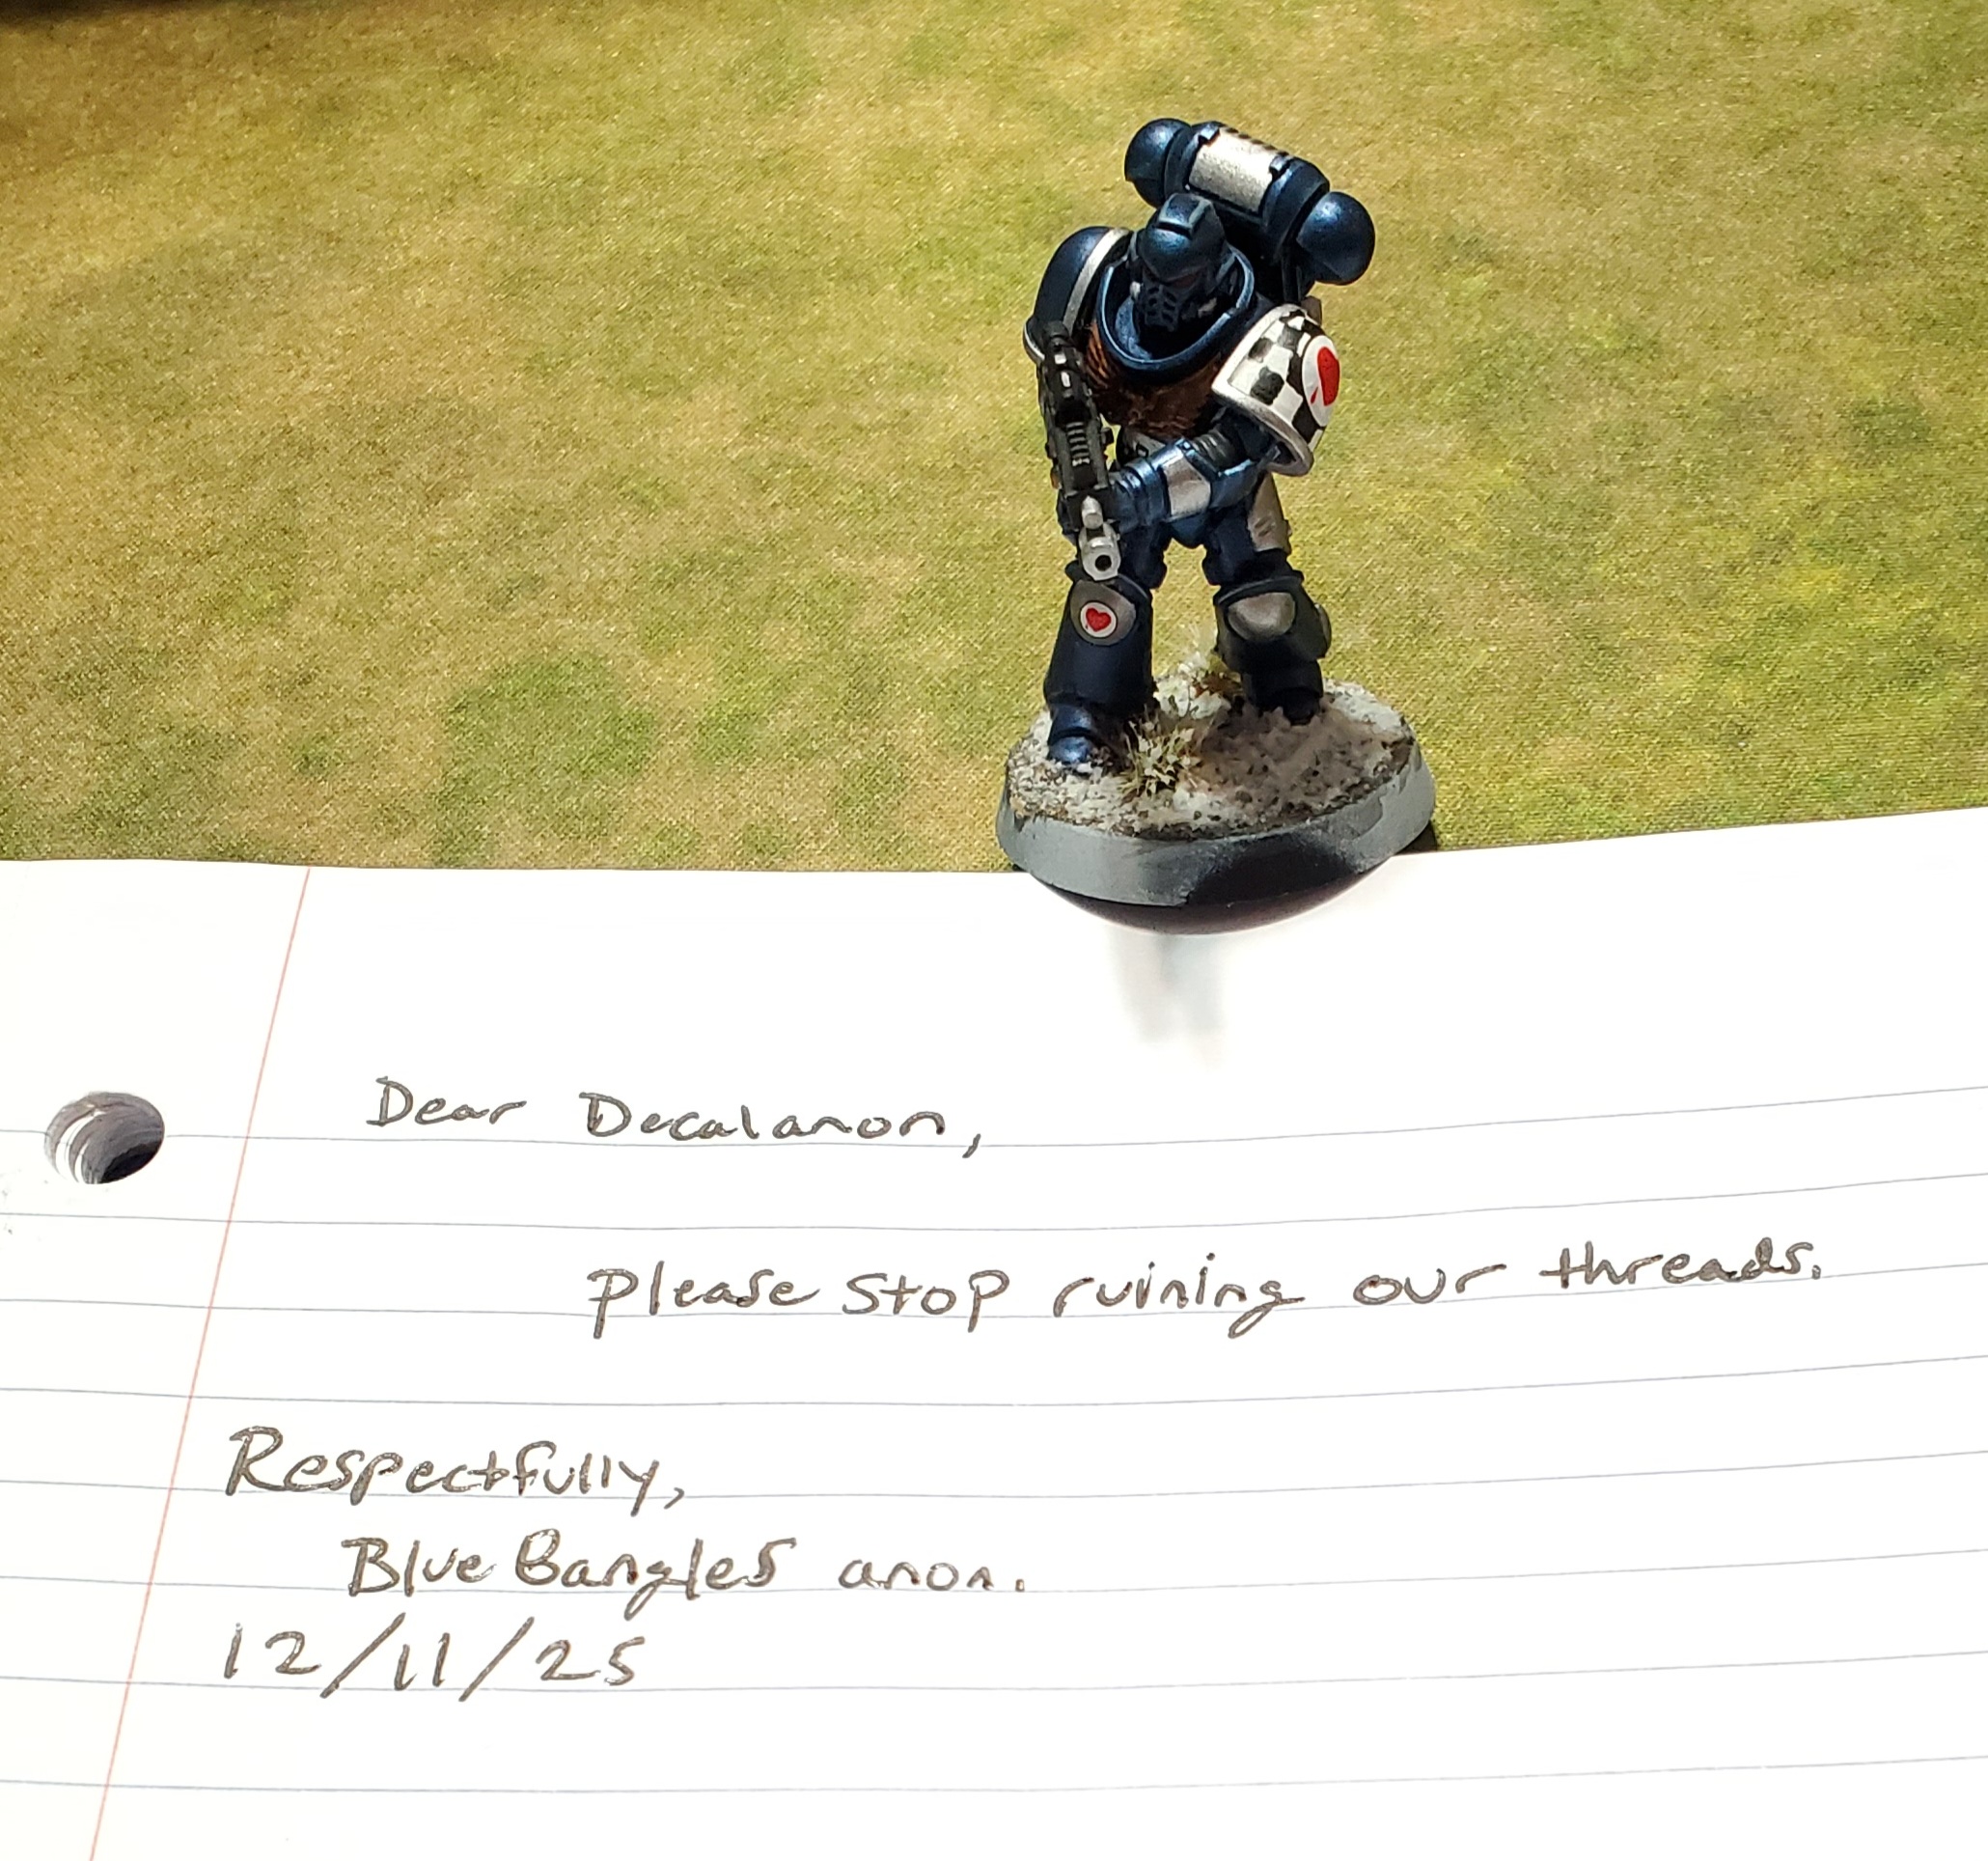 Dear Decalanon,
please stop ruining our threads.
Respectfully,
Blue Bangles anon.
12/11/25